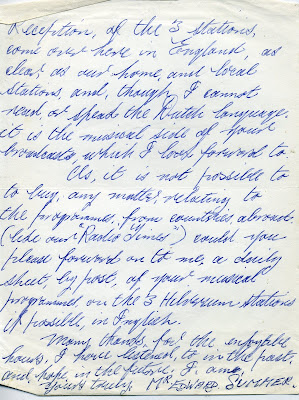 Reception, of the 3 stations,
come over here in England, as
clear as our home, and local
stations, and, though I cannot
read, or speak the Dutch language,
it is the musical side of your
broadcasts, which I look forward to.
As, it is not possible to
to buy, any matter, relating to
the programmes, from countries, abroad,
(like our "Radio Times") could you
please forward on to me, a daily
sheet, by post, of your musical
programmes, on the 3 Hilversum stations
if possible, in English.
Many thanks, for the enjoyable
hours, I have listened, to in the past,
and hope in the future, I am,
Yours truly Mr EDWARD SUMMER.